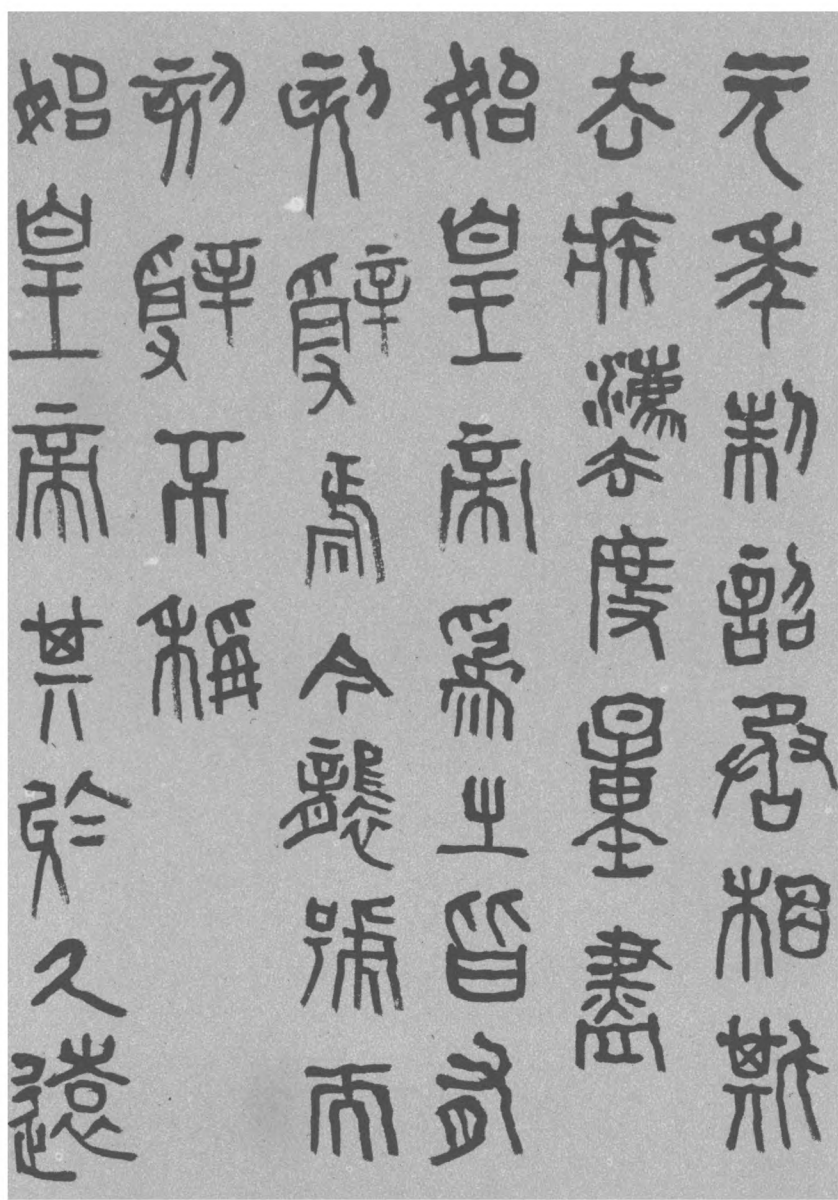 元年制詔丞相斯
去疾灋度量盡
始皇帝爲之皆有
刻辭焉今襲號而
刻辭不稱
始皇帝其於久遠